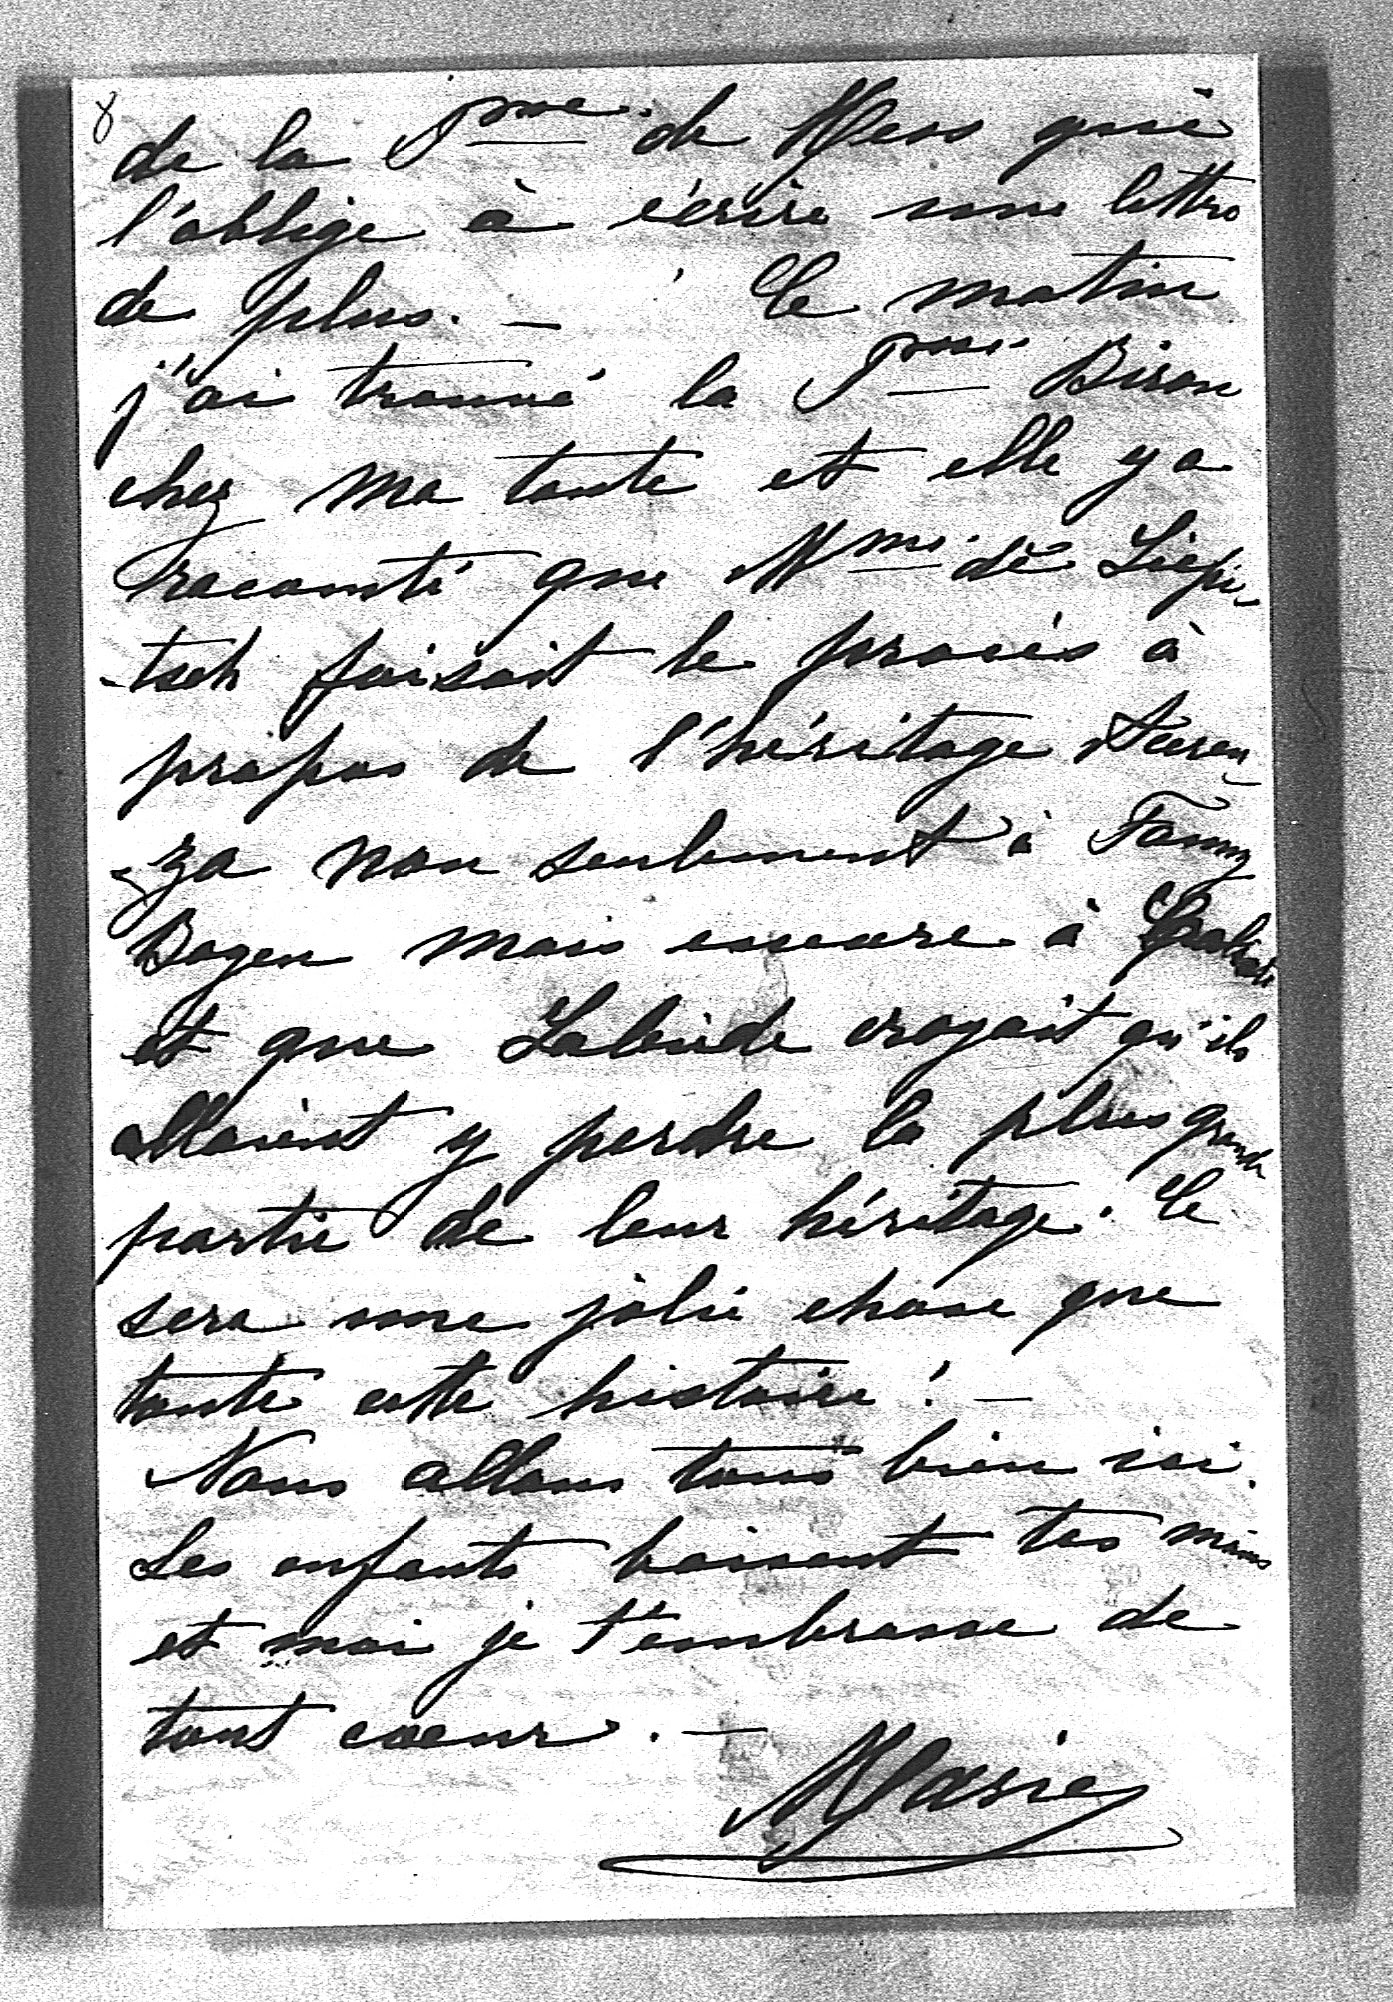 8
de la Psse de Hess qui
l'oblige à écrire une lettre
de plus. — Ce matin
j'ai trouvé la Psse Biron
chez ma tante et elle y a
raconté que Mme de
-tsch faisait le procès à
propos de l'héritage
-za non seulement à Fanny
Bogen mais encore à
et que croyait qu'ils
allaient y perdre la plus grande
partie de leur héritage. Ce
sera une jolie chose que
toute cette histoire! —
Nous allons tous bien ici.
Les enfants baisent tes mains
et moi je t'embrasse de
tout coeur. —
Marie